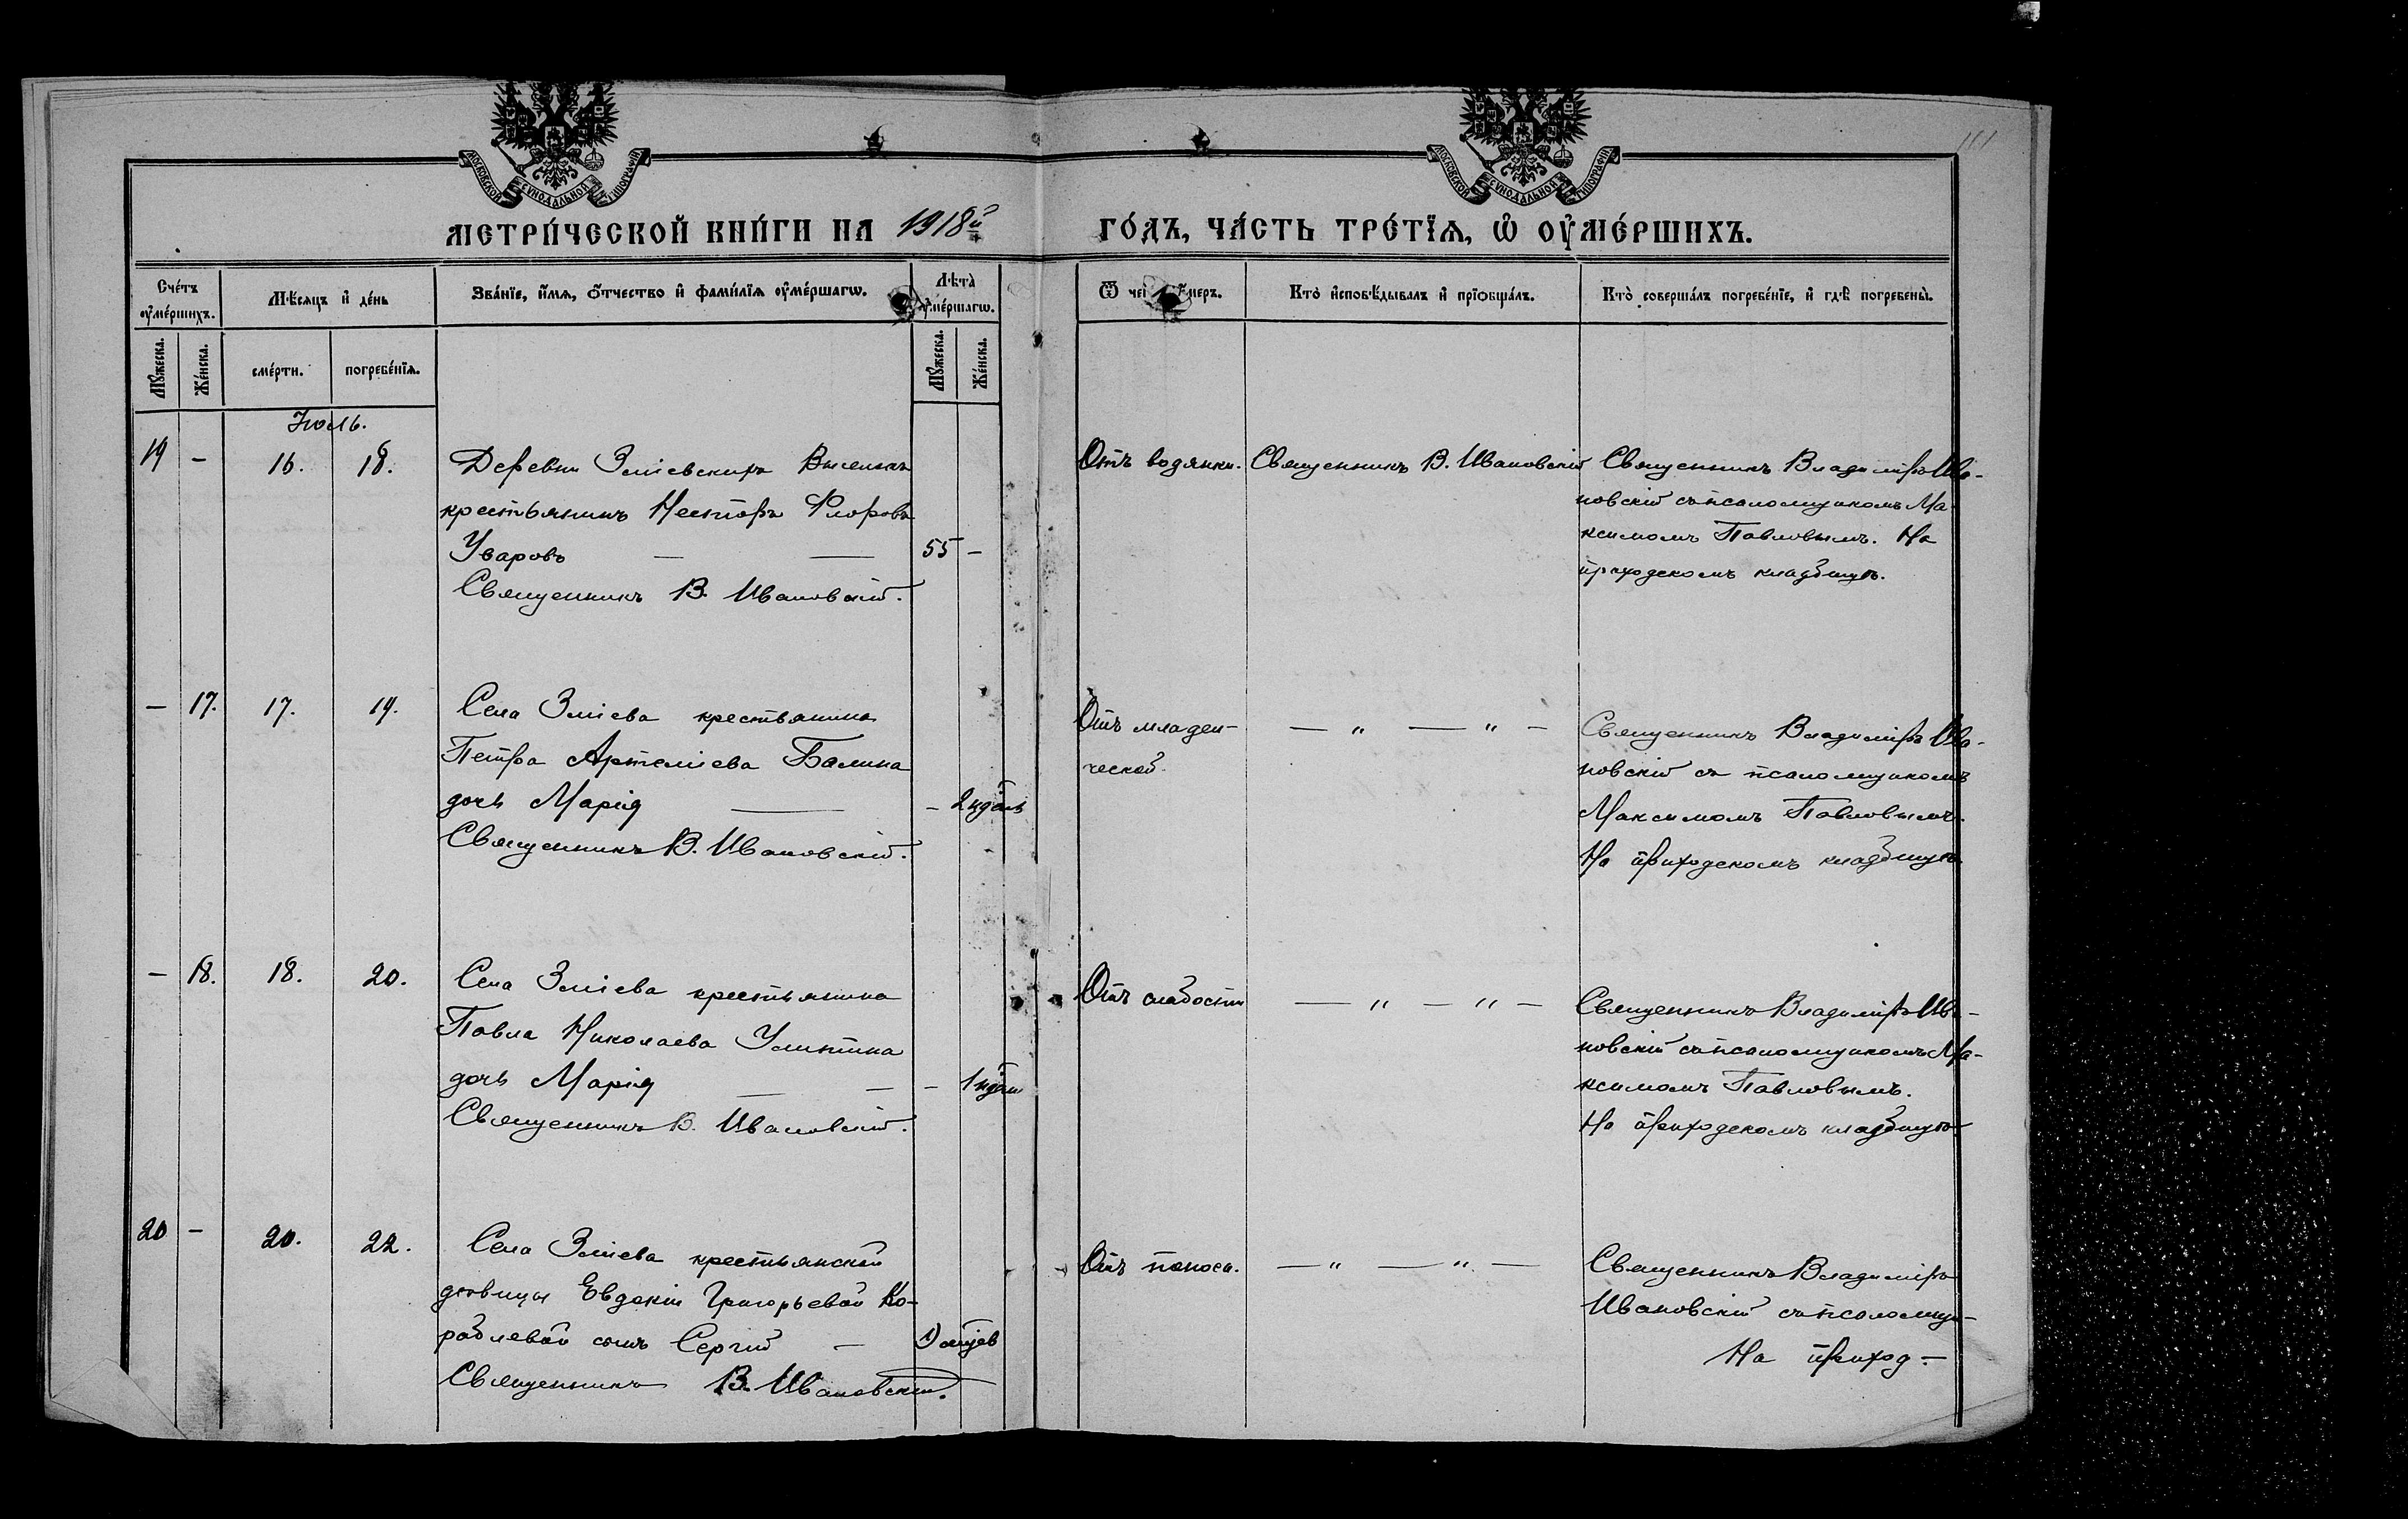 111
МОСКОВСКОЙ СѴНОДАЛЬНОЙ ТИПОГРАФІИ
МОСКОВСКОЙ СѴНОДАЛЬНОЙ ТИПОГРАФІИ
МЕТРИ́ЧЕСКОЙ КНИ́ГИ НА 1918й
ГО́ДЪ, ЧА́СТЬ ТРЕ́ТЇѦ, Ѡ҆ ОУ҆МЕ́РШИХЪ.
Сче́тъ оу҆ме́ршихъ.
Мѣ́сѧцъ и҆ де́нь
Зва́нїе, и҆́мѧ, ѻ҆́тчество и҆ фами́лїѧ оу҆ме́ршагѡ.
Лѣ̀та оу҆ме́ршагѡ.
Ѿ чегѡ̀ оу҆́меръ.
Кто̀ и҆сповѣ́дывалъ и҆ прїѡбща́лъ.
Кто̀ соверша́лъ погребе́нїе, и҆ гдѣ̀ погребены̀.
Мꙋ́жеска.
Же́нска.
сме́рти.
погребе́нїѧ.
Мꙋ́жеска.
Же́нска.
Іюль.
19 - 16. 18. Деревни Зміевскихъ Выселокъ
крестьянинъ Несторъ Флоровъ
Уваровъ — — 55 -
Священникъ В. Ивановскій.
Отъ водянки. Священникъ В. Ивановскій
Священникъ Владиміръ Ива-
новскій съ псаломщикомъ Ма-
ксимомъ Павловымъ. На
приходскомъ кладбищѣ.
— 17. 17. 19. Села Зміева крестьянина
Петра Артеміева Балина
дочь Марія — - 2 ндѣль
Священникъ В. Ивановскій.
Отъ младен-
ческой.
— „ — „ —
Священникъ Владиміръ Ива-
новскій съ псаломщикомъ
Максимомъ Павловымъ.
На приходскомъ кладбищѣ.
— 18. 18. 20. Села Зміева крестьянина
Павла Николаева
дочь Марія — — - 1 ндѣли
Священникъ В. Ивановскій.
Отъ слабости
— „ — „ —
Священникъ Владиміръ Ива-
новскій съ псаломщикомъ Ма-
ксимомъ Павловымъ.
На приходскомъ кладбищѣ.
20 - 20. 22. Села Зміева крестьянской
дѣвицы Евдокіи Григорьевой Ко-
раблевой сынъ Сергій —
Священникъ В. Ивановскій.
Отъ поноса.
— „ — „ —
Священникъ Владиміръ
Ивановскій съ псаломщи-
На приход-